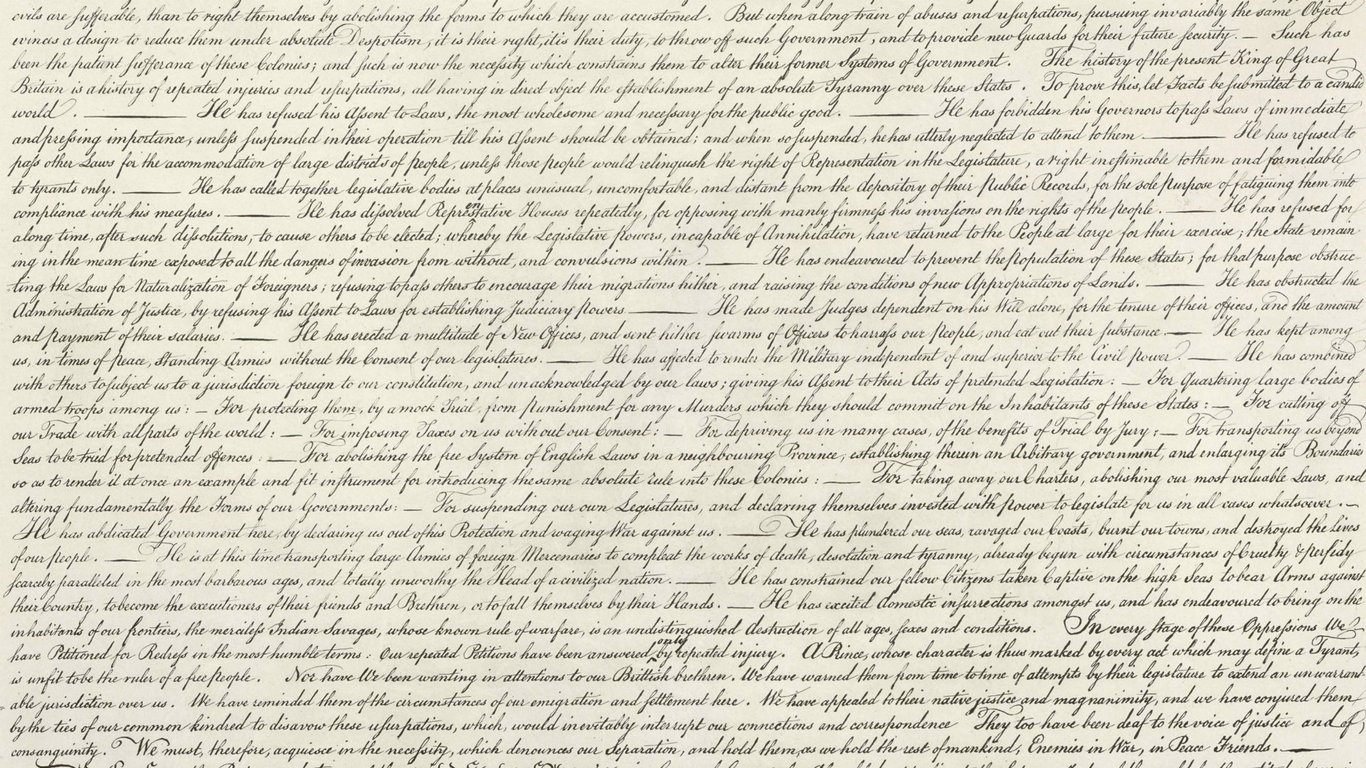 evils are sufferable, than to right themselves by abolishing the forms to which they are accustomed. But when a long train of abuses and usurpations, pursuing invariably the same Object
evinces a design to reduce them under absolute Despotism, it is their right, it is their duty, to throw off such Government, and to provide new Guards for their future security. — Such has
been the patient sufferance of these Colonies; and such is now the necessity which constrains them to alter their former Systems of Government. The history of the present King of Great
Britain is a history of repeated injuries and usurpations, all having in direct object the establishment of an absolute Tyranny over these States. To prove this, let Facts be submitted to a candid
world. — He has refused his Assent to Laws, the most wholesome and necessary for the public good. — He has forbidden his Governors to pass Laws of immediate
and pressing importance, unless suspended in their operation till his Assent should be obtained; and when so suspended, he has utterly neglected to attend to them. — He has refused to
pass other Laws for the accommodation of large districts of people, unless those people would relinquish the right of Representation in the Legislature, a right inestimable to them and formidable
to tyrants only. — He has called together legislative bodies at places unusual, uncomfortable, and distant from the depository of their Public Records, for the sole purpose of fatiguing them into
compliance with his measures. — He has dissolved Representative Houses repeatedly, for opposing with manly firmness his invasions on the rights of the people. — He has refused for
a long time, after such dissolutions, to cause others to be elected; whereby the Legislative powers, incapable of Annihilation, have returned to the People at large for their exercise; the State remain
ing in the mean time exposed to all the dangers of invasion from without, and convulsions within. — He has endeavoured to prevent the population of these States; for that purpose obstruc-
ting the Laws for Naturalization of Foreigners; refusing to pass others to encourage their migrations hither, and raising the conditions of new Appropriations of Lands. — He has obstructed the
Administration of Justice, by refusing his Assent to Laws for establishing Judiciary powers — He has made Judges dependent on his Will alone, for the tenure of their offices, and the amount
and payment of their salaries. — He has erected a multitude of New Offices, and sent hither swarms of Officers to harrass our people, and eat out their substance. — He has kept among
us, in times of peace, Standing Armies without the Consent of our legislatures. — He has affected to render the Military independent of and superior to the Civil power. — He has combined
with others to subject us to a jurisdiction foreign to our constitution, and unacknowledged by our laws; giving his Assent to their Acts of pretended Legislation: — For Quartering large bodies of
armed troops among us: — For protecting them, by a mock Trial, from punishment for any Murders which they should commit on the Inhabitants of these States: — For cutting off
our Trade with all parts of the world: — For imposing Taxes on us without our Consent: — For depriving us in many cases, of the benefits of Trial by Jury: — For transporting us beyond
Seas to be tried for pretended offences: — For abolishing the free System of English Laws in a neighbouring Province, establishing therein an Arbitrary government, and enlarging it's Boundaries
so as to render it at once an example and fit instrument for introducing the same absolute rule into these Colonies: — For taking away our Charters, abolishing our most valuable Laws, and
altering fundamentally the Forms of our Governments: — For suspending our own Legislatures, and declaring themselves invested with power to legislate for us in all cases whatsoever. —
He has abdicated Government here, by declaring us out of his Protection and waging War against us. — He has plundered our seas, ravaged our Coasts, burnt our towns, and destroyed the Lives
of our people. — He is at this time transporting large Armies of foreign Mercenaries to compleat the works of death, desolation and tyranny, already begun with circumstances of Cruelty & perfidy
scarcely paralleled in the most barbarous ages, and totally unworthy the Head of a civilized nation. — He has constrained our fellow Citizens taken Captive on the high Seas to bear Arms against
their Country, to become the executioners of their friends and Brethren, or to fall themselves by their Hands. — He has excited domestic insurrections amongst us, and has endeavoured to bring on the
inhabitants of our frontiers, the merciless Indian Savages, whose known rule of warfare, is an undistinguished destruction of all ages, sexes and conditions. In every stage of these Oppressions We
have Petitioned for Redress in the most humble terms: Our repeated Petitions have been answered only by repeated injury. A Prince, whose character is thus marked by every act which may define a Tyrant,
is unfit to be the ruler of a free people. Nor have We been wanting in attentions to our Brittish brethren. We have warned them from time to time of attempts by their legislature to extend an unwarrant
able jurisdiction over us. We have reminded them of the circumstances of our emigration and settlement here. We have appealed to their native justice and magnanimity, and we have conjured them
by the ties of our common kindred to disavow these usurpations, which, would inevitably interrupt our connections and correspondence They too have been deaf to the voice of justice and of
consanguinity. We must, therefore, acquiesce in the necessity, which denounces our Separation, and hold them, as we hold the rest of mankind, Enemies in War, in Peace Friends. —